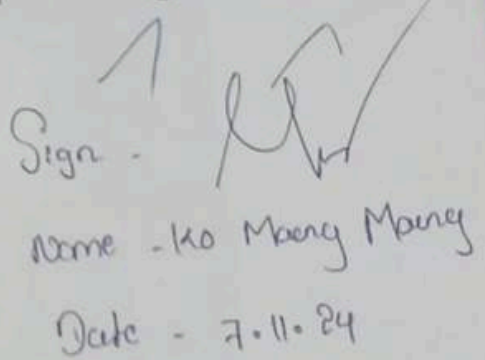 Sign -
Name - Ko Maung Maung
Date - 7.11.24